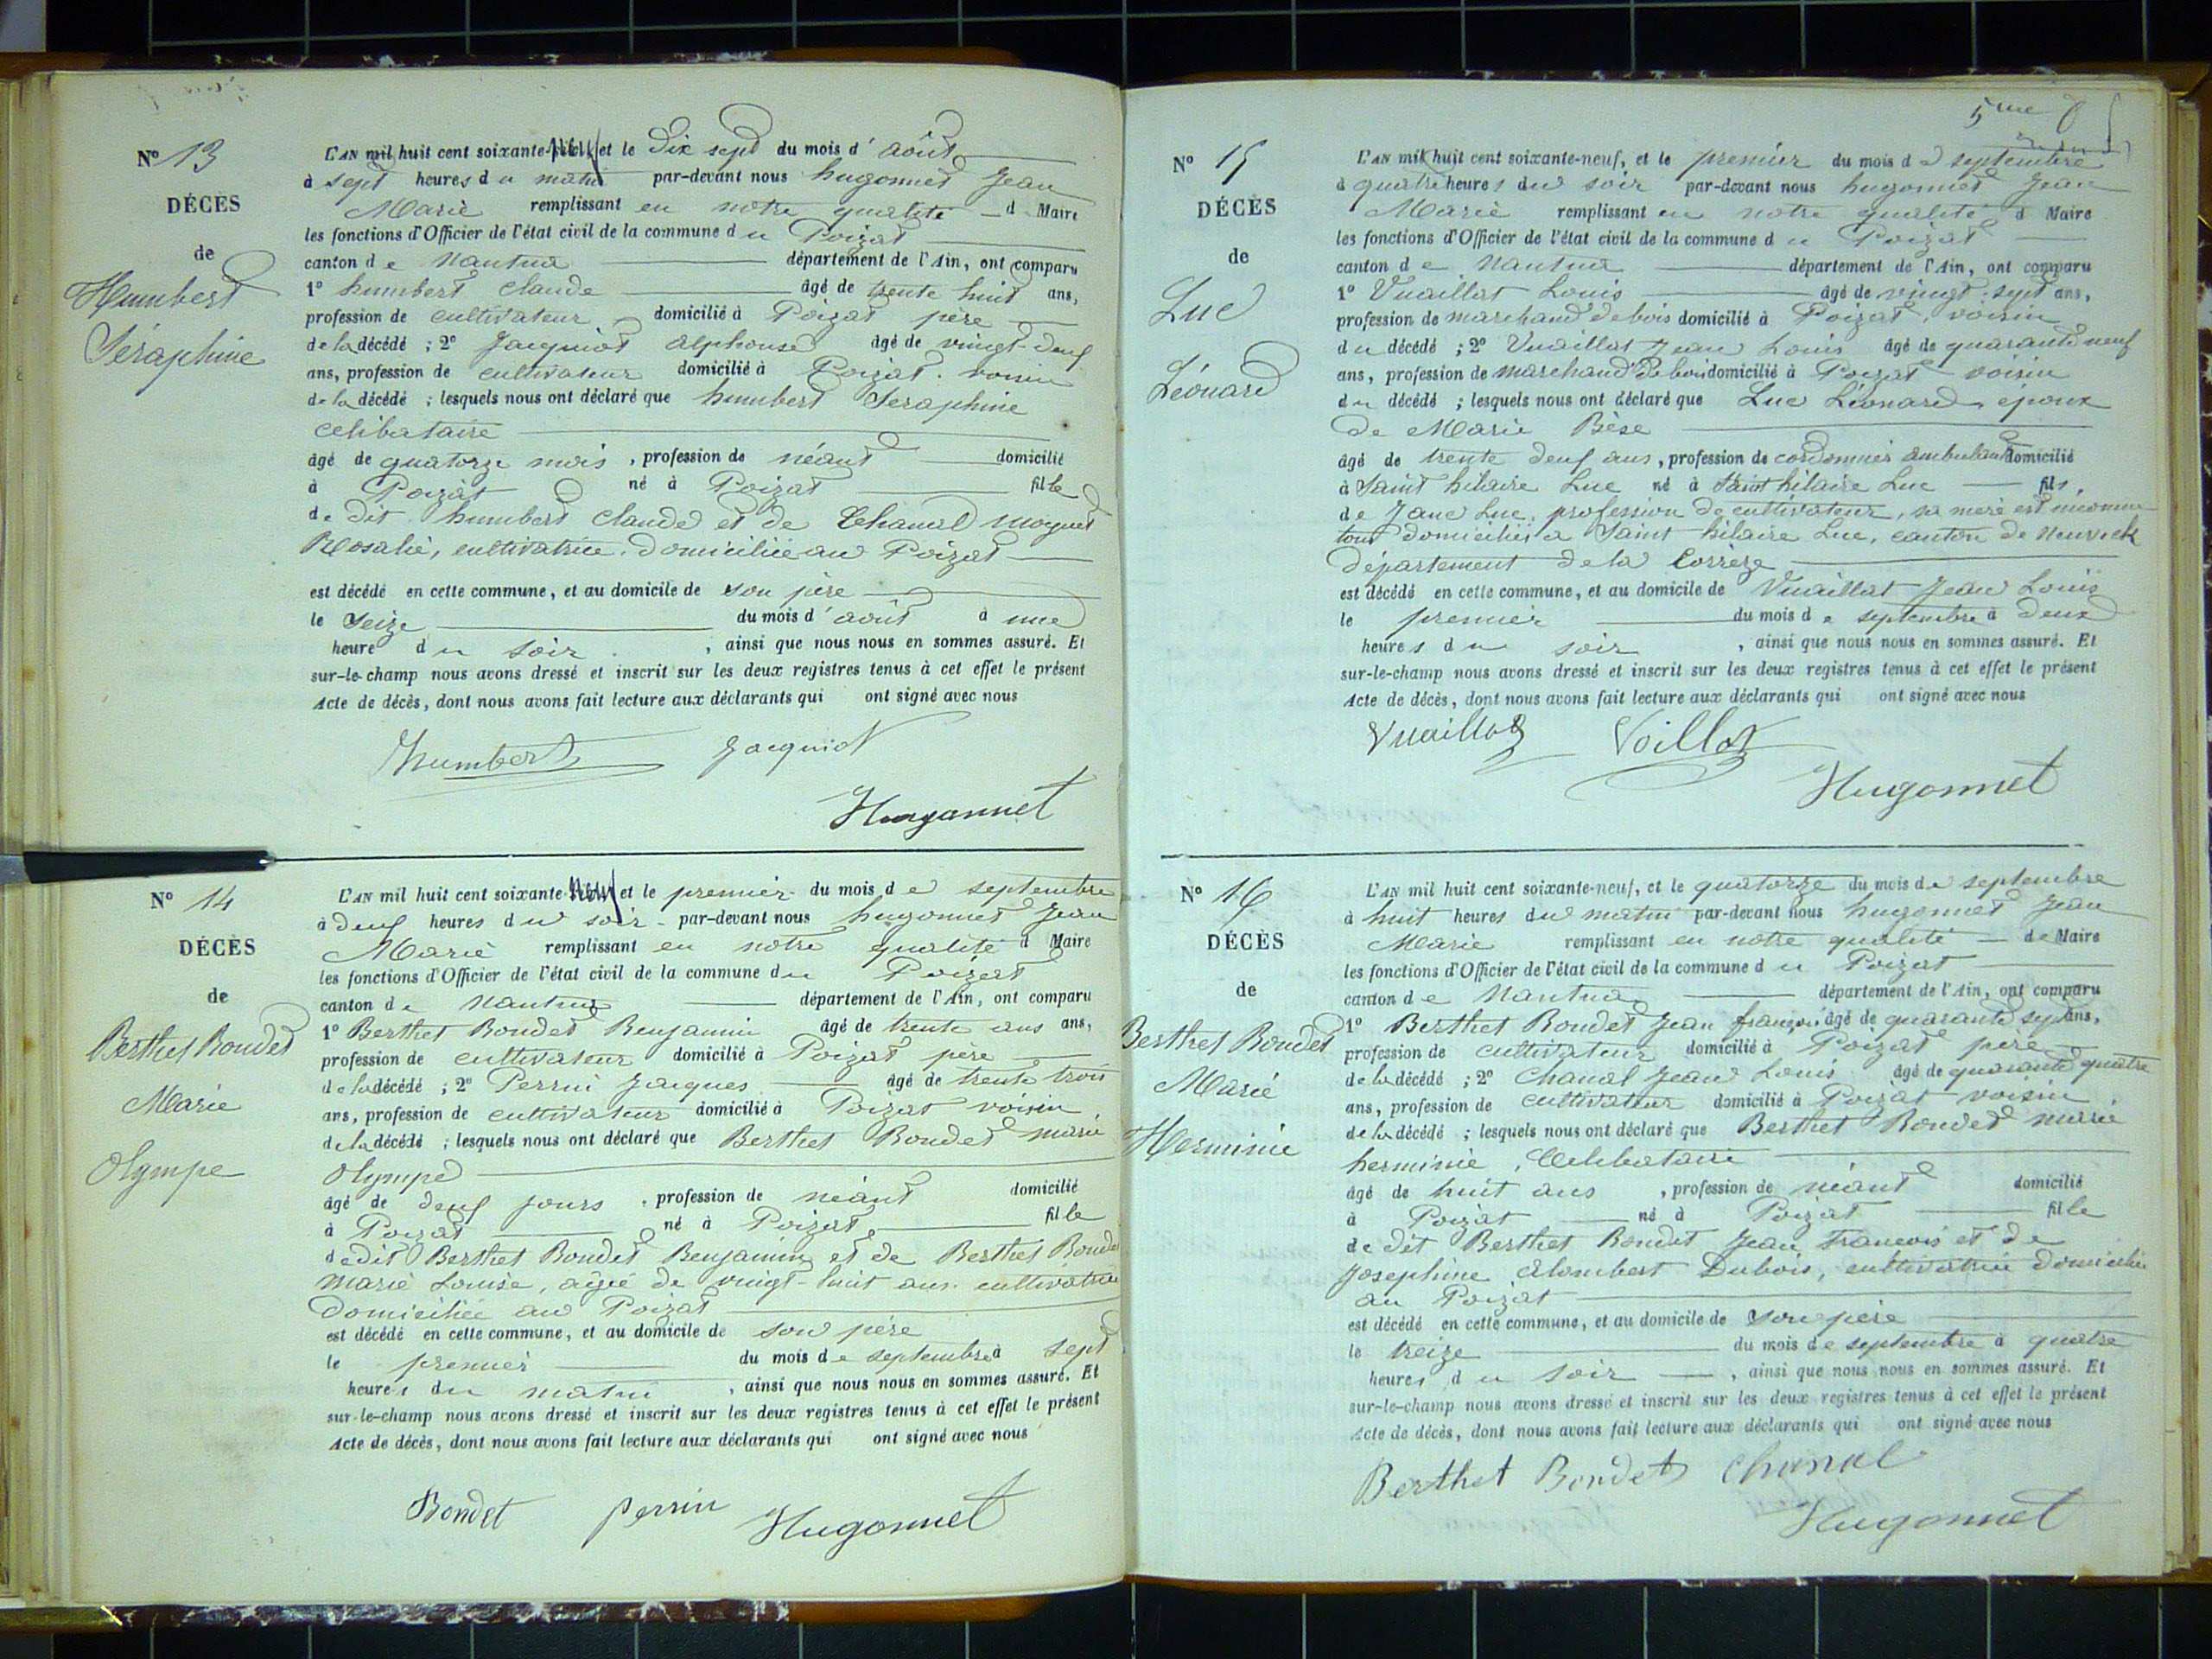 N° 13
DÉCÈS
de
Humbert
Séraphine
L'AN mil huit cent soixante-neuf et le dix sept du mois d'août
à sept heures du matin par-devant nous hugonnet Jean
Marie remplissant en notre qualité d Maire
les fonctions d'Officier de l'état civil de la commune du Poizat
canton de Nantua département de l'Ain, ont comparu
1° humbert Claude âgé de trente huit ans,
profession de cultivateur domicilié à Poizat père
de la décédé ; 2° Jacquiot alphonse âgé de vingt-deuf
ans, profession de cultivateur domicilié à Poizat. voisin
de la décédé ; lesquels nous ont déclaré que humbert Seraphine
celibataire
âgé de quatorze mois, profession de néant domicilié
à Poizat né à Poizat fille
de dit humbert Claude et de Chanal moguet
Rosalie, cultivatrice. domiciliée au Poizat
est décédé en cette commune, et au domicile de son père
le seize du mois d'août à une
heure du soir, ainsi que nous nous en sommes assuré. Et
sur-le-champ nous avons dressé et inscrit sur les deux registres tenus à cet effet le présent
Acte de décès, dont nous avons fait lecture aux déclarants qui ont signé avec nous
Humbert Jacquiot
Hugonnet
N° 14
DÉCÈS
de
Berthet Bondet
Marie
Olympe
L'AN mil huit cent soixante-neuf et le premier du mois de septembre
à deuf heures du soir par-devant nous hugonnet Jean
Marie remplissant en notre qualité d Maire
les fonctions d'Officier de l'état civil de la commune du Poizat
canton de Nantua département de l'Ain, ont comparu
1° Berthet Bondet Benjamin âgé de trente ans ans,
profession de cultivateur domicilié à Poizat père
de la décédé ; 2° Perrin Jacques âgé de trente trois
ans, profession de cultivateur domicilié à Poizat voisin
de la décédé ; lesquels nous ont déclaré que Berthet Bondet marie
Olympe
âgé de deuf jours, profession de néant domicilié
à Poizat né à Poizat fille
de dit Berthet Bondet Benjamin et de Berthet Bondet
Marie Louise, agée de vingt-huit ans. cultivatrice
domiciliée au Poizat
est décédé en cette commune, et au domicile de son père
le premier du mois de septembre à sept
heures du matin, ainsi que nous nous en sommes assuré. Et
sur-le-champ nous avons dressé et inscrit sur les deux registres tenus à cet effet le présent
Acte de décès, dont nous avons fait lecture aux déclarants qui ont signé avec nous
Bondet Perrin Hugonnet
5me
N° 15
DÉCÈS
de
Luc
Léonard
L'AN mil huit cent soixante-neuf, et le premier du mois de septembre
à quatre heures du soir par-devant nous hugonnet Jean
Marie remplissant en notre qualité d Maire
les fonctions d'Officier de l'état civil de la commune du Poizat
canton de Nantua département de l'Ain, ont comparu
1° Vuaillat Louis âgé de vingt-sept ans,
profession de marchand de bois domicilié à Poizat, voisin
du décédé ; 2° Vuaillat Jean Louis âgé de quarante neuf
ans, profession de marchand de bois domicilié à Poizat voisin
du décédé ; lesquels nous ont déclaré que Luc Léonard, époux
de Marie Bèse
âgé de trente deuf ans, profession de cordonnier ambulant domicilié
à Saint hilaire Luc né à Saint hilaire Luc fils,
de Jane Luc, profession de cultivateur, sa mère est inconnue
tous domiciliés à Saint hilaire Luc, canton de Neuvick
département de la Corrèze
est décédé en cette commune, et au domicile de Vuaillat Jean Louis
le premier du mois de septembre à deux
heures du soir, ainsi que nous nous en sommes assuré. Et
sur-le-champ nous avons dressé et inscrit sur les deux registres tenus à cet effet le présent
Acte de décès, dont nous avons fait lecture aux déclarants qui ont signé avec nous
Vuaillat Voillat
Hugonnet
N° 16
DÉCÈS
de
Berthet Bondet
Marie
Herminie
L'AN mil huit cent soixante-neuf, et le quatorze du mois de septembre
à huit heures du matin par-devant nous hugonnet Jean
Marie remplissant en notre qualité de Maire
les fonctions d'Officier de l'état civil de la commune du Poizat
canton de Nantua département de l'Ain, ont comparu
1° Berthet Bondet Jean françois âgé de quarante sept ans,
profession de cultivateur domicilié à Poizat père
de la décédé ; 2° Chanal Jean Louis âgé de quarante quatre
ans, profession de cultivateur domicilié à Poizat voisin
de la décédé ; lesquels nous ont déclaré que Berthet Bondet marie
herminie, Celibataire
âgé de huit ans, profession de néant domicilié
à Poizat né à Poizat fille
de dit Berthet Bondet Jean francois et de
Josephine Alombert Dubois, cultivatrice domiciliée
au Poizat
est décédé en cette commune, et au domicile de son père
le treize du mois de septembre à quatre
heures du soir, ainsi que nous nous en sommes assuré. Et
sur-le-champ nous avons dressé et inscrit sur les deux registres tenus à cet effet le présent
Acte de décès, dont nous avons fait lecture aux déclarants qui ont signé avec nous
Berthet Bondet Chanal
Hugonnet